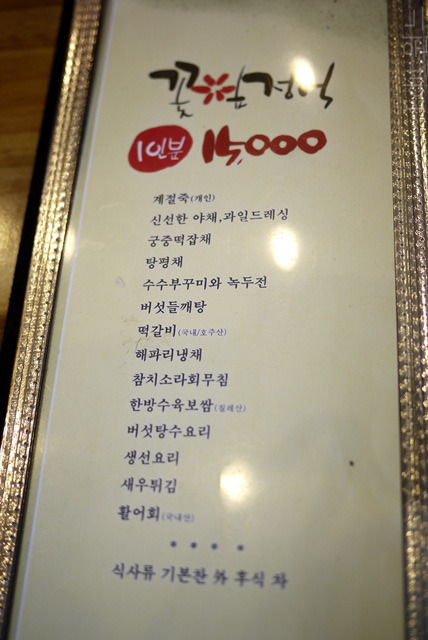 꽃잎정식
1인분 15,000
계절죽(개인)
신선한 야채,과일드레싱
궁중떡잡채
탕평채
수수부꾸미와 녹두전
버섯들깨탕
떡갈비(국내/호주산)
해파리냉채
참치소라회무침
한방수육보쌈(칠레산)
버섯탕수요리
생선요리
새우튀김
활어회(국내산)
* * * *
식사류 기본찬 外 후식 차